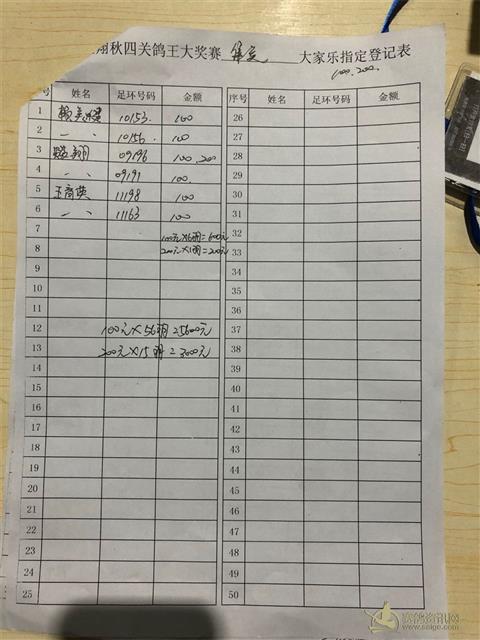 翔秋四关鸽王大奖赛 大家乐指定登记表
100.200
号 姓名 足环号码 金额 序号 姓名 足环号码 金额
1 10153 100 26
2 10156 100 27
3 翔 09196 100.200 28
4 09191 100. 29
5 王 英 11198 100 30
6 11163 100 31
7 100元×6羽=600元 32
8 200元×1羽=200元 33
9 34
10 35
11 36
12 100元×56羽=5600元 37
13 200元×15羽=3000元 38
14 39
15 40
16 41
17 42
18 43
19 44
20 45
21 46
22 47
23 48
24 49
25 50
赛鸽资讯网
www.saige.com